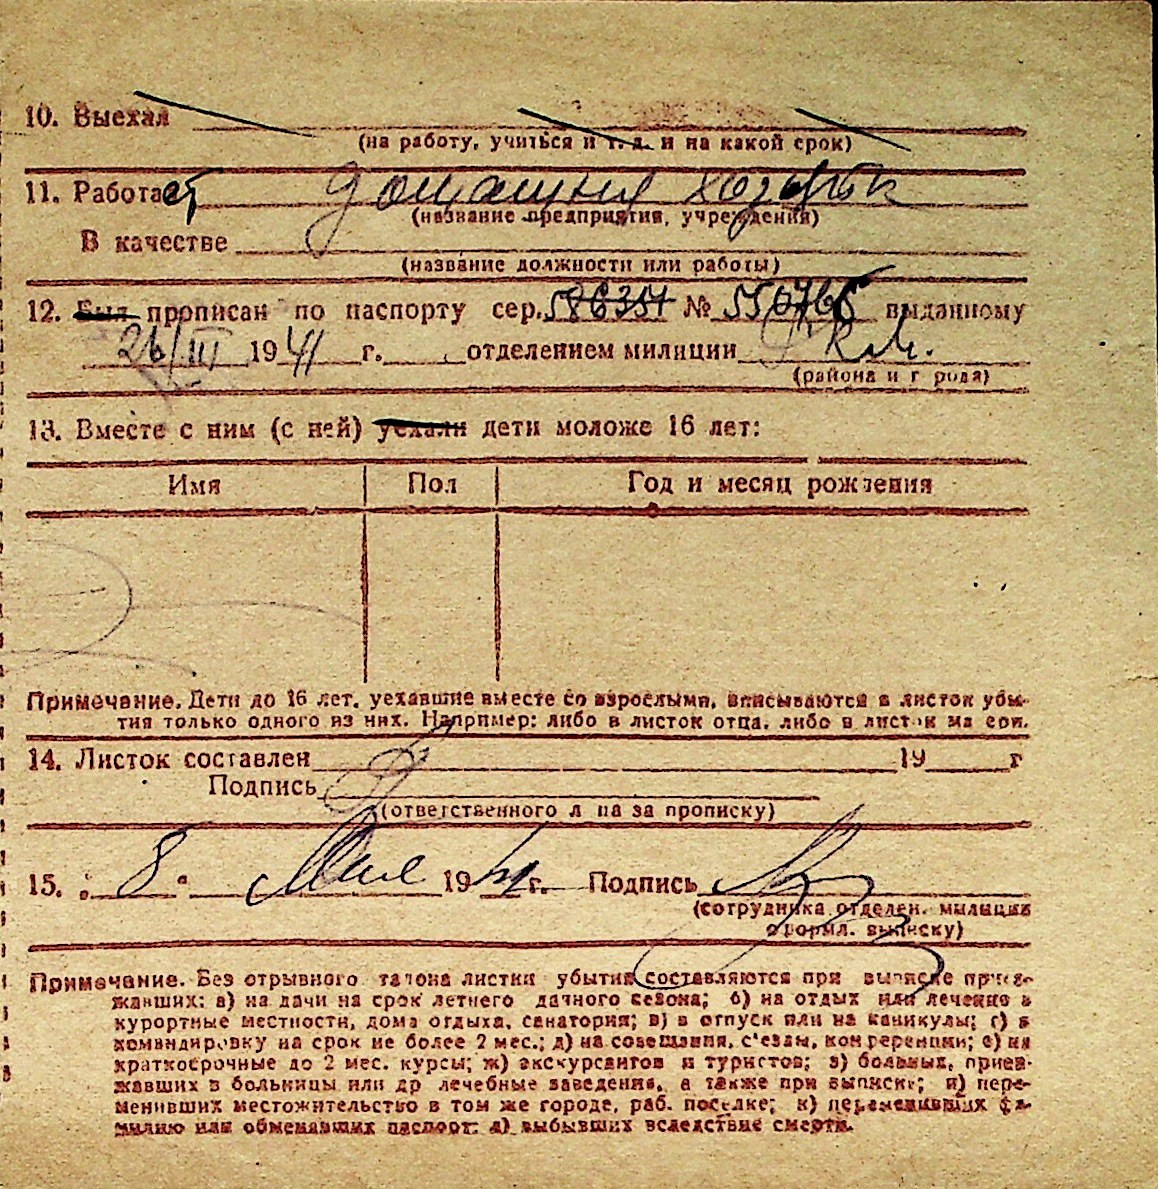 10. Выехал
(на работу, учиться и т. д. и на какой срок)
11. Работает домашняя хозяйка
(название предприятия, учреждения)
В качестве
(название должности или работы)
12. Был прописан по паспорту сер. 586351 № 550765 выданному
26/III 1941 г. отделением милиции
(района и города)
13. Вместе с ним (с ней) уехали дети моложе 16 лет:
Имя Пол Год и месяц рождения
Примечание. Дети до 16 лет, уехавшие вместе со взрослыми, вписываются в листок убы-
тия только одного из них. Например: либо в листок отца, либо в листок матери.
14. Листок составлен 19 г
Подпись
(ответственного лица за прописку)
15. „8“ Мая 1941 г. Подпись
(сотрудника отделен. милиции
оформл. выписку)
Примечание. Без отрывного талона листки убытия составляются при выписке приез-
жавших: а) на дачи на срок летнего дачного сезона; б) на отдых или лечение в
курортные местности, дома отдыха, санатория; в) в отпуск или на каникулы; г) в
командировку на срок не более 2 мес.; д) на совещания, с'езды, конференции; е) на
краткосрочные до 2 мес. курсы; ж) экскурсантов и туристов; з) больных, приез-
жавших в больницы или др лечебные заведения, а также при выписке; и) пере-
менивших местожительство в том же городе, раб. поселке; к) переменивших фа-
милию или обменявших паспорт; л) выбывших вследствие смерти.